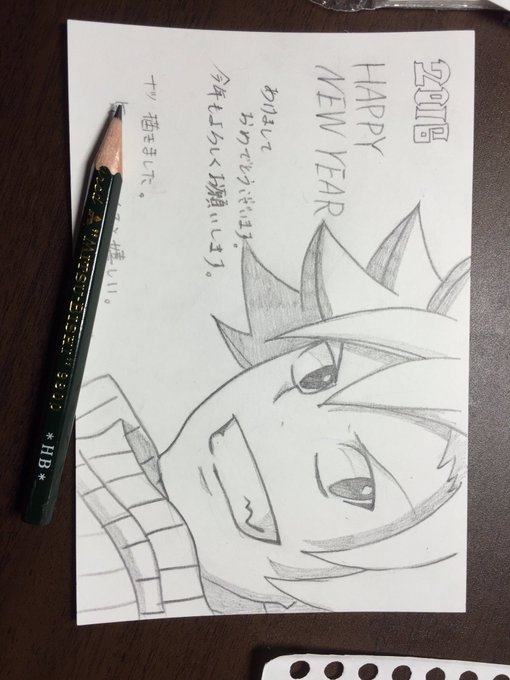 2016
HAPPY
NEW YEAR
あけまして
おめでとうございます。
今年もよろしくお願いします。
ナツ 描きました。
嬉しい。
"MITSU-BISHI" 9800 *HB*